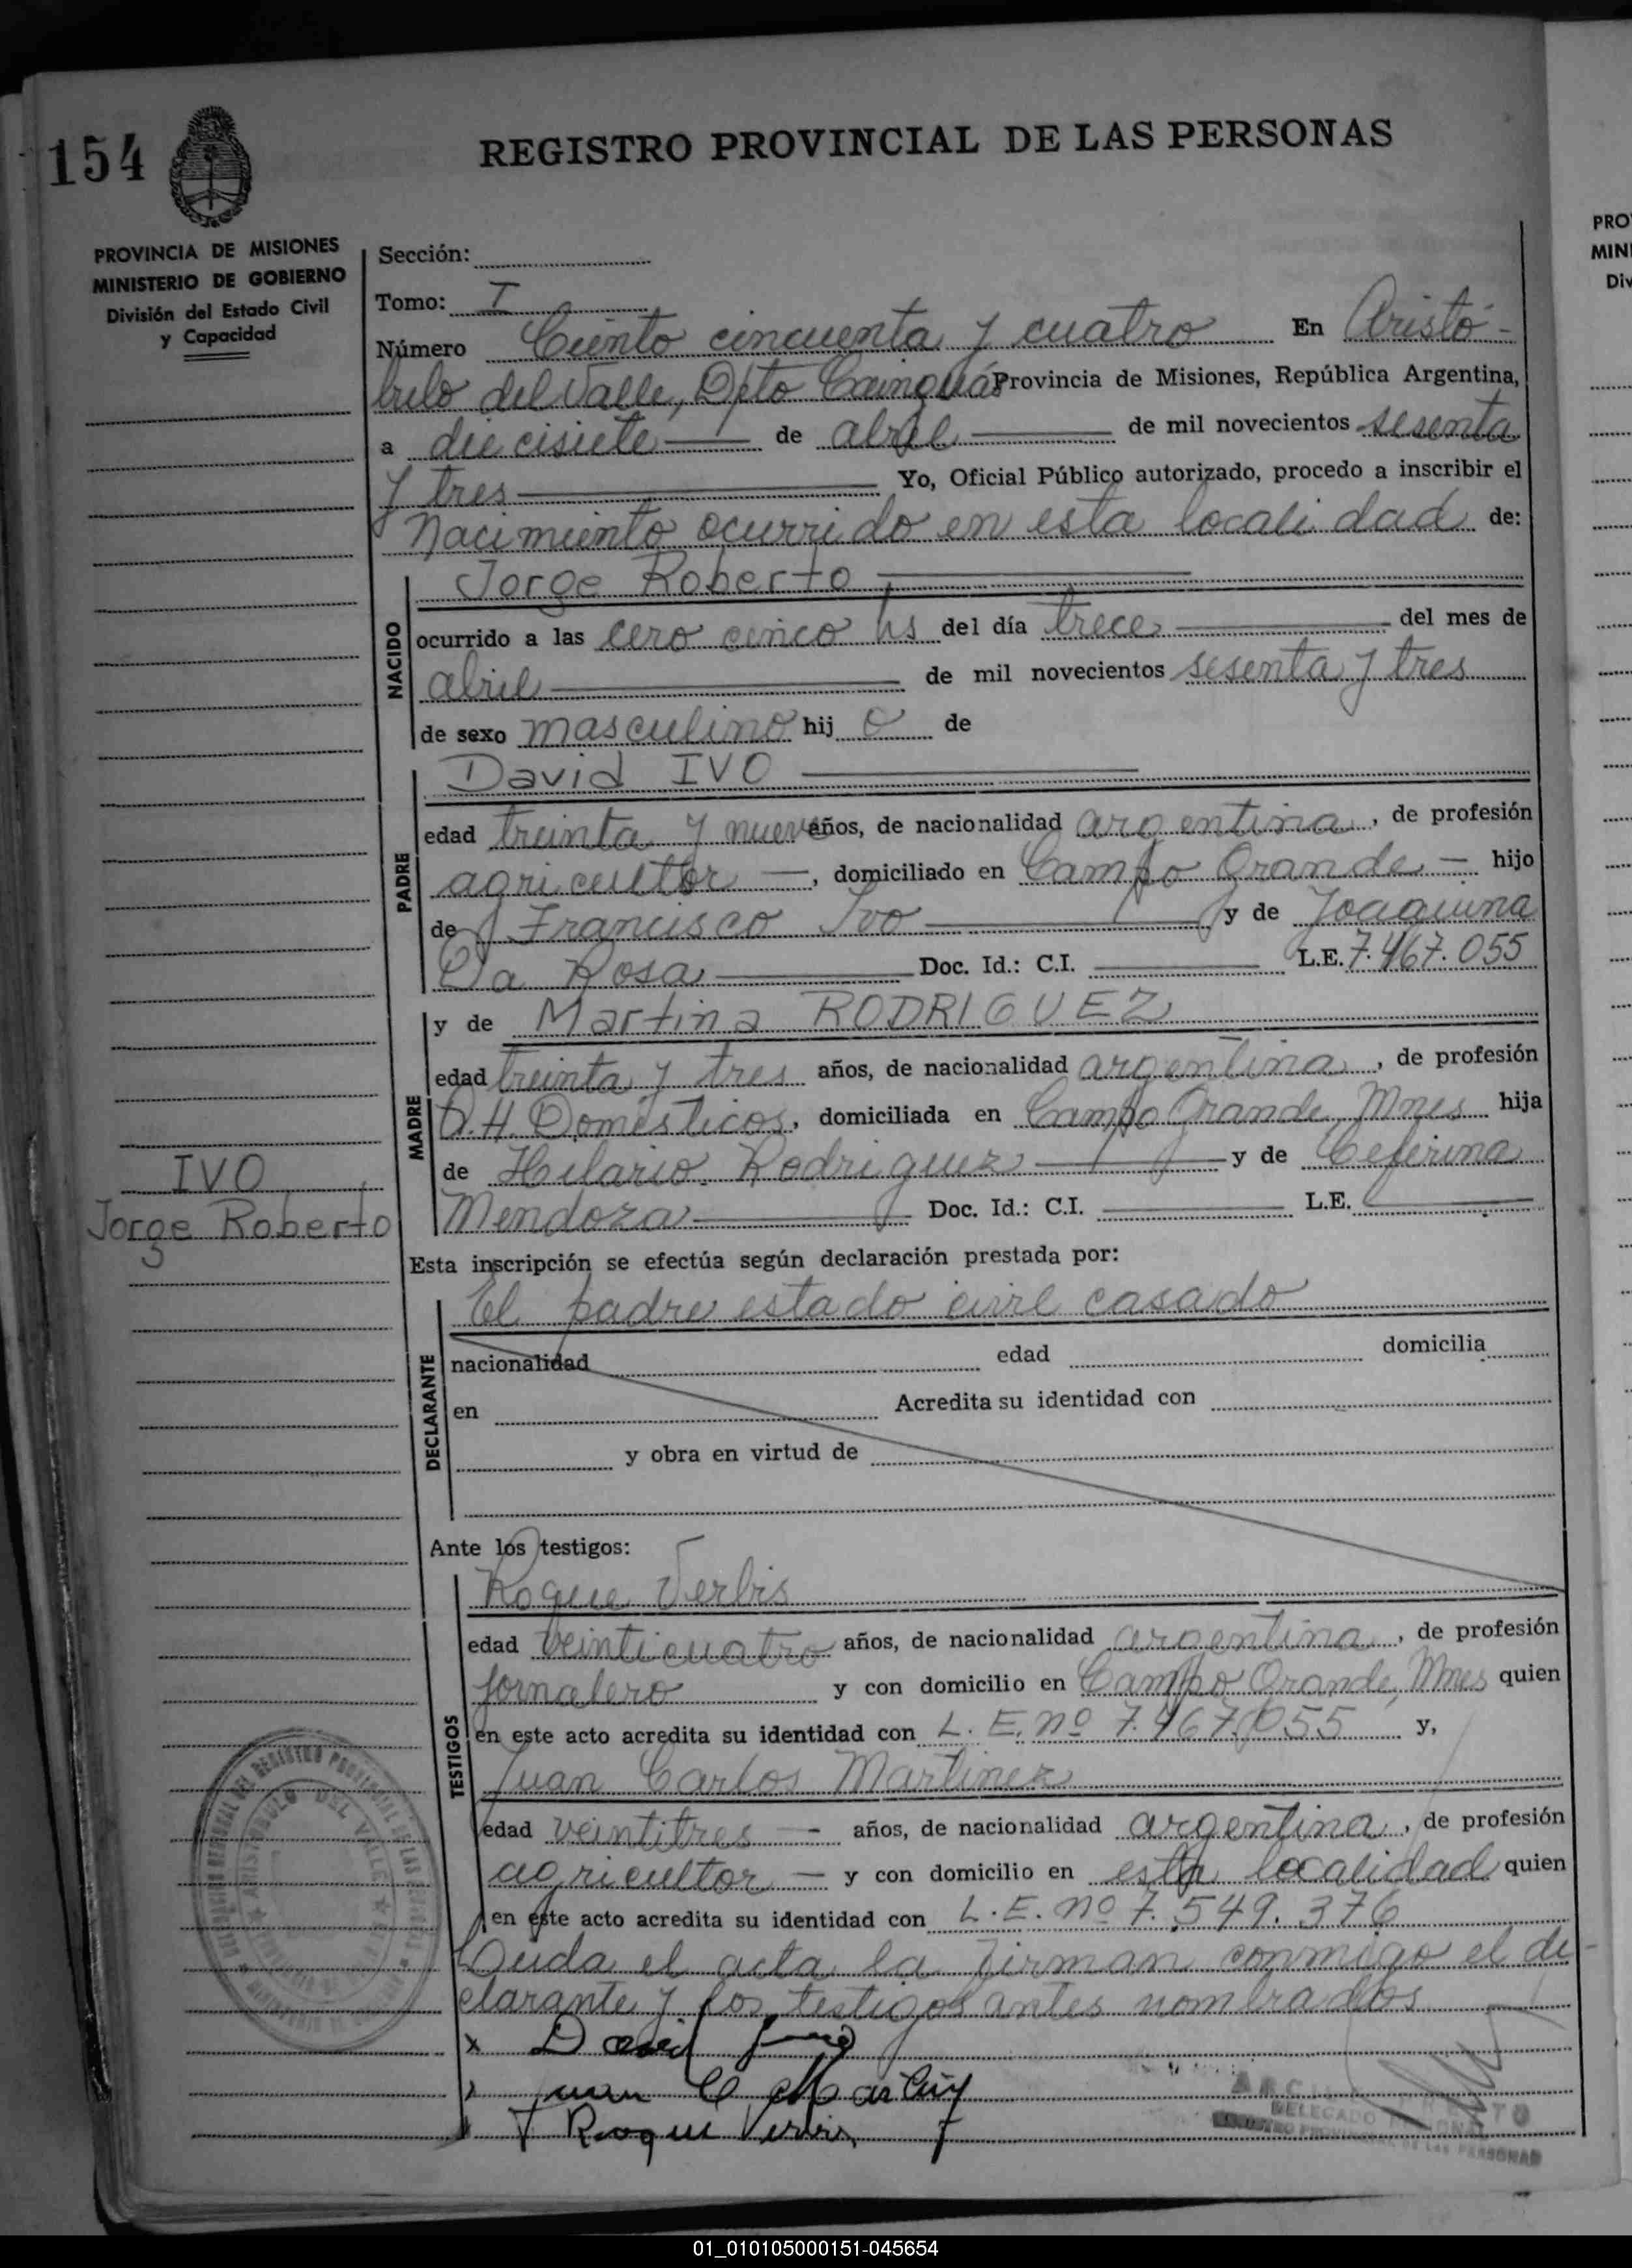 154
REGISTRO PROVINCIAL DE LAS PERSONAS
PROVINCIA DE MISIONES
MINISTERIO DE GOBIERNO
División del Estado Civil
y Capacidad
Sección:
Tomo: I
Número Ciento cincuenta y cuatro En Aristó-
bulo del Valle, Dpto Cainguás Provincia de Misiones, República Argentina,
a diecisiete de abril de mil novecientos sesenta
y tres Yo, Oficial Público autorizado, procedo a inscribir el
Nacimiento ocurrido en esta localidad de:
NACIDO
Jorge Roberto
ocurrido a las cero cinco hs del día trece del mes de
abril de mil novecientos sesenta y tres
de sexo masculino hij o de
PADRE
David IVO
edad treinta y nueve años, de nacionalidad argentina, de profesión
agricultor, domiciliado en Campo Grande - hijo
de Francisco Ivo y de Joaquina
Da Rosa Doc. Id.: C.I. L.E. 7.467.055
MADRE
y de Martina RODRIGUEZ
edad treinta y tres años, de nacionalidad argentina, de profesión
Q.H. Domésticos, domiciliada en Campo Grande, Mnes hija
de Hilario Rodriguez y de Ceferina
Mendoza Doc. Id.: C.I. L.E.
IVO
Jorge Roberto
Esta inscripción se efectúa según declaración prestada por:
DECLARANTE
El padre estado civil casado
nacionalidad edad domicilia
en Acredita su identidad con
y obra en virtud de
Ante los testigos:
TESTIGOS
Roque Verbis
edad veinticuatro años, de nacionalidad argentina, de profesión
jornalero y con domicilio en Campo Grande, Mnes quien
en este acto acredita su identidad con L. E. nº 7.467.055 y,
Juan Carlos Martinez
edad veintitres - años, de nacionalidad argentina, de profesión
agricultor - y con domicilio en esta localidad quien
en este acto acredita su identidad con L.E. nº 7.549.376
Leida el acta la firman conmigo el de-
clarante y los testigos antes nombrados
x David
Juan C Martinez
Roque Verbis
ARISTOBULO DEL VALLE
DELEGADO
REGISTRO PROVINCIAL DE LAS PERSONAS
PRO
MINI
Div
01_010105000151-045654